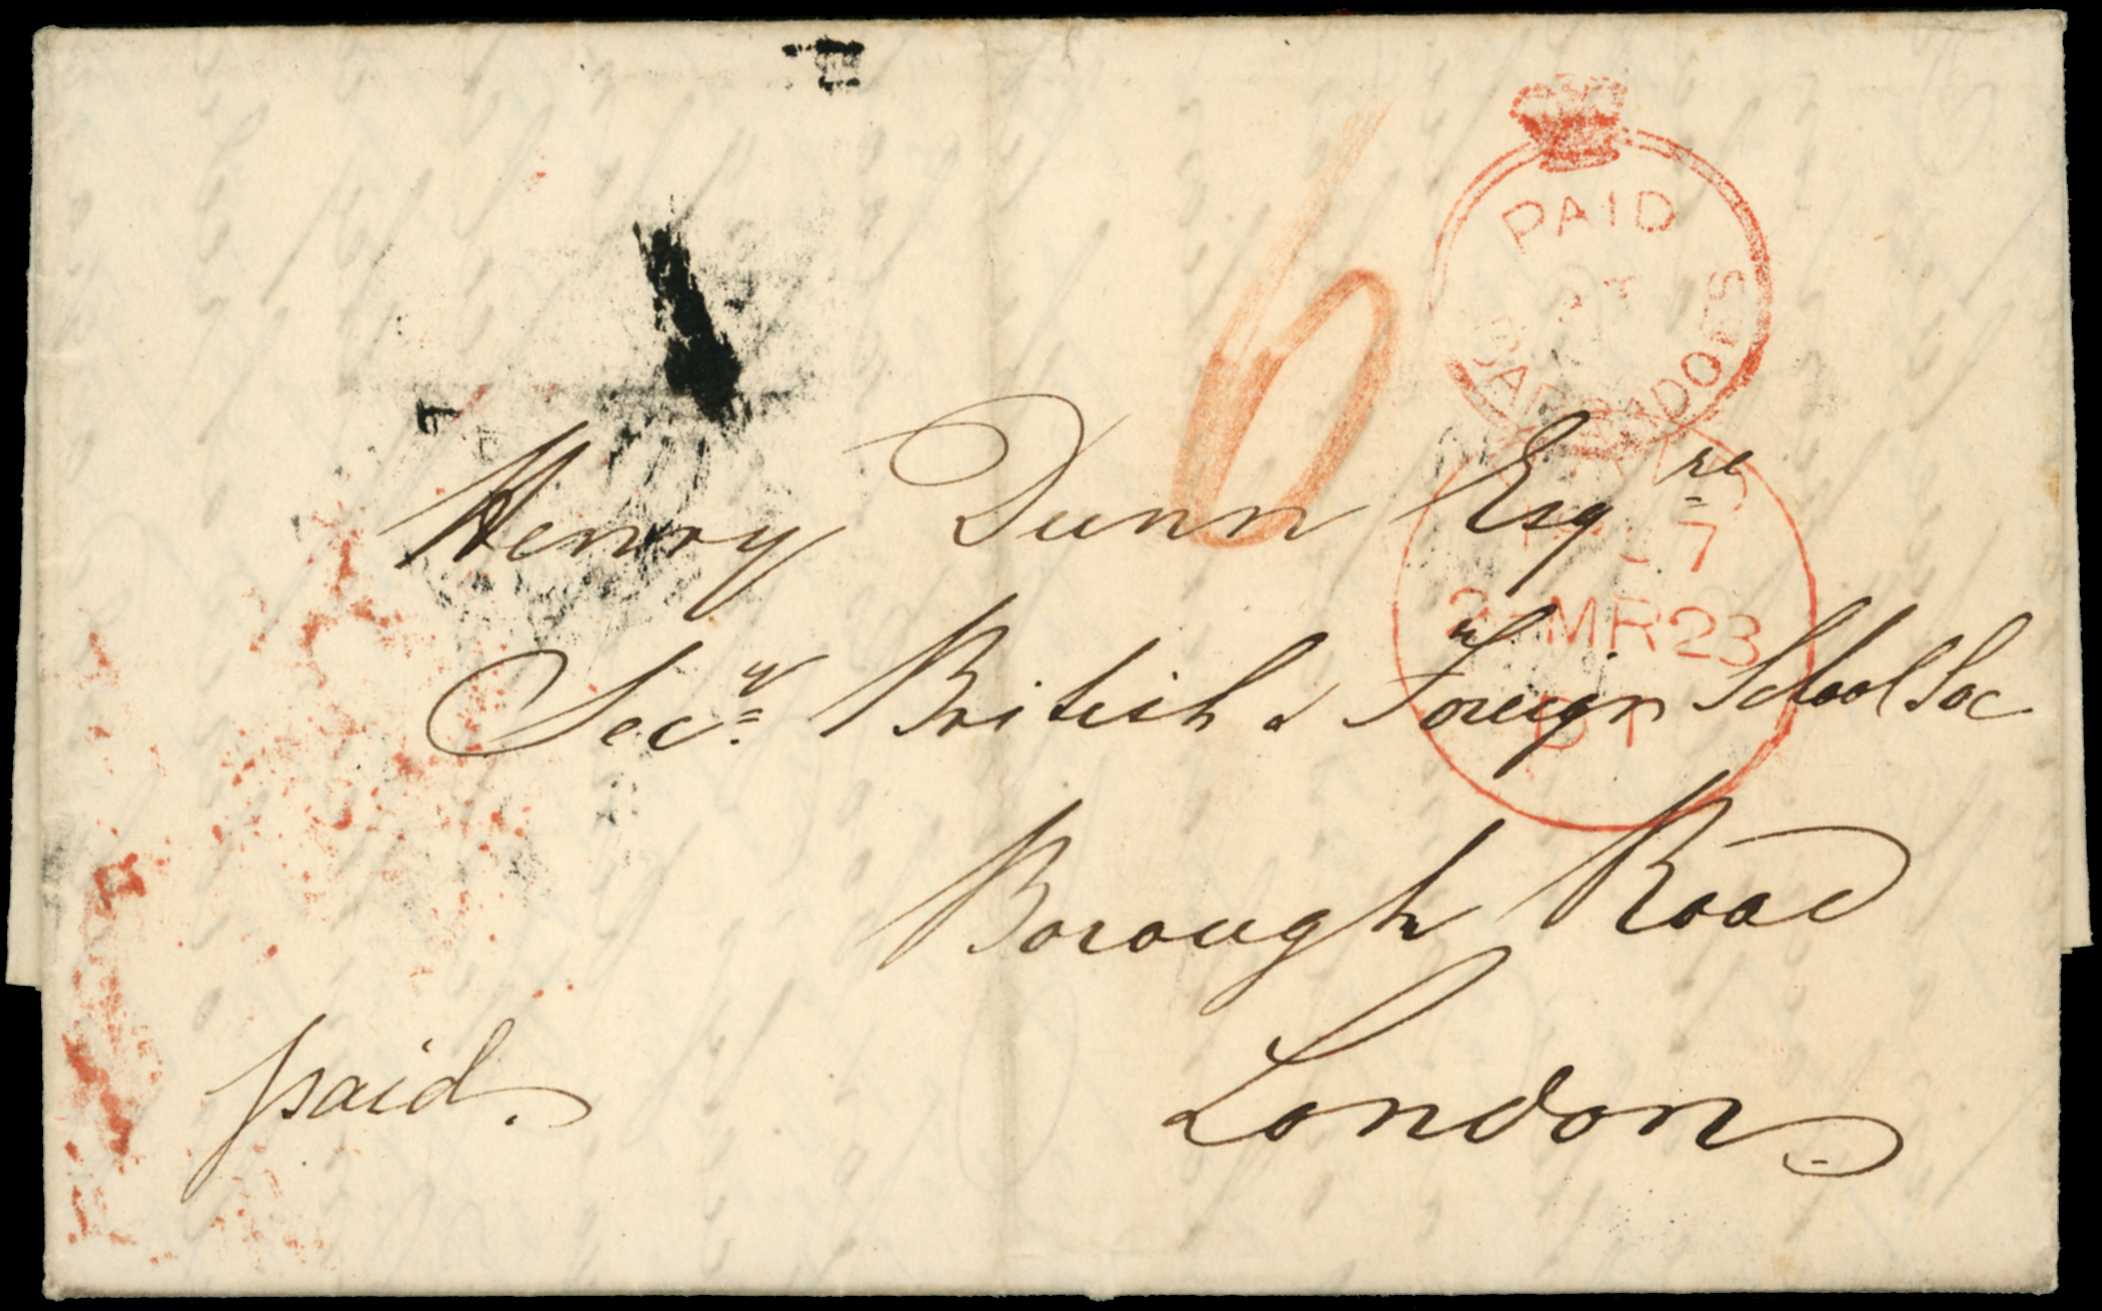 PAID
AT
BARBADOES
6
Henry Dunn Esqre
7
MR 23
Secy. British & Foreign School Soc
Borough Road
London
paid.